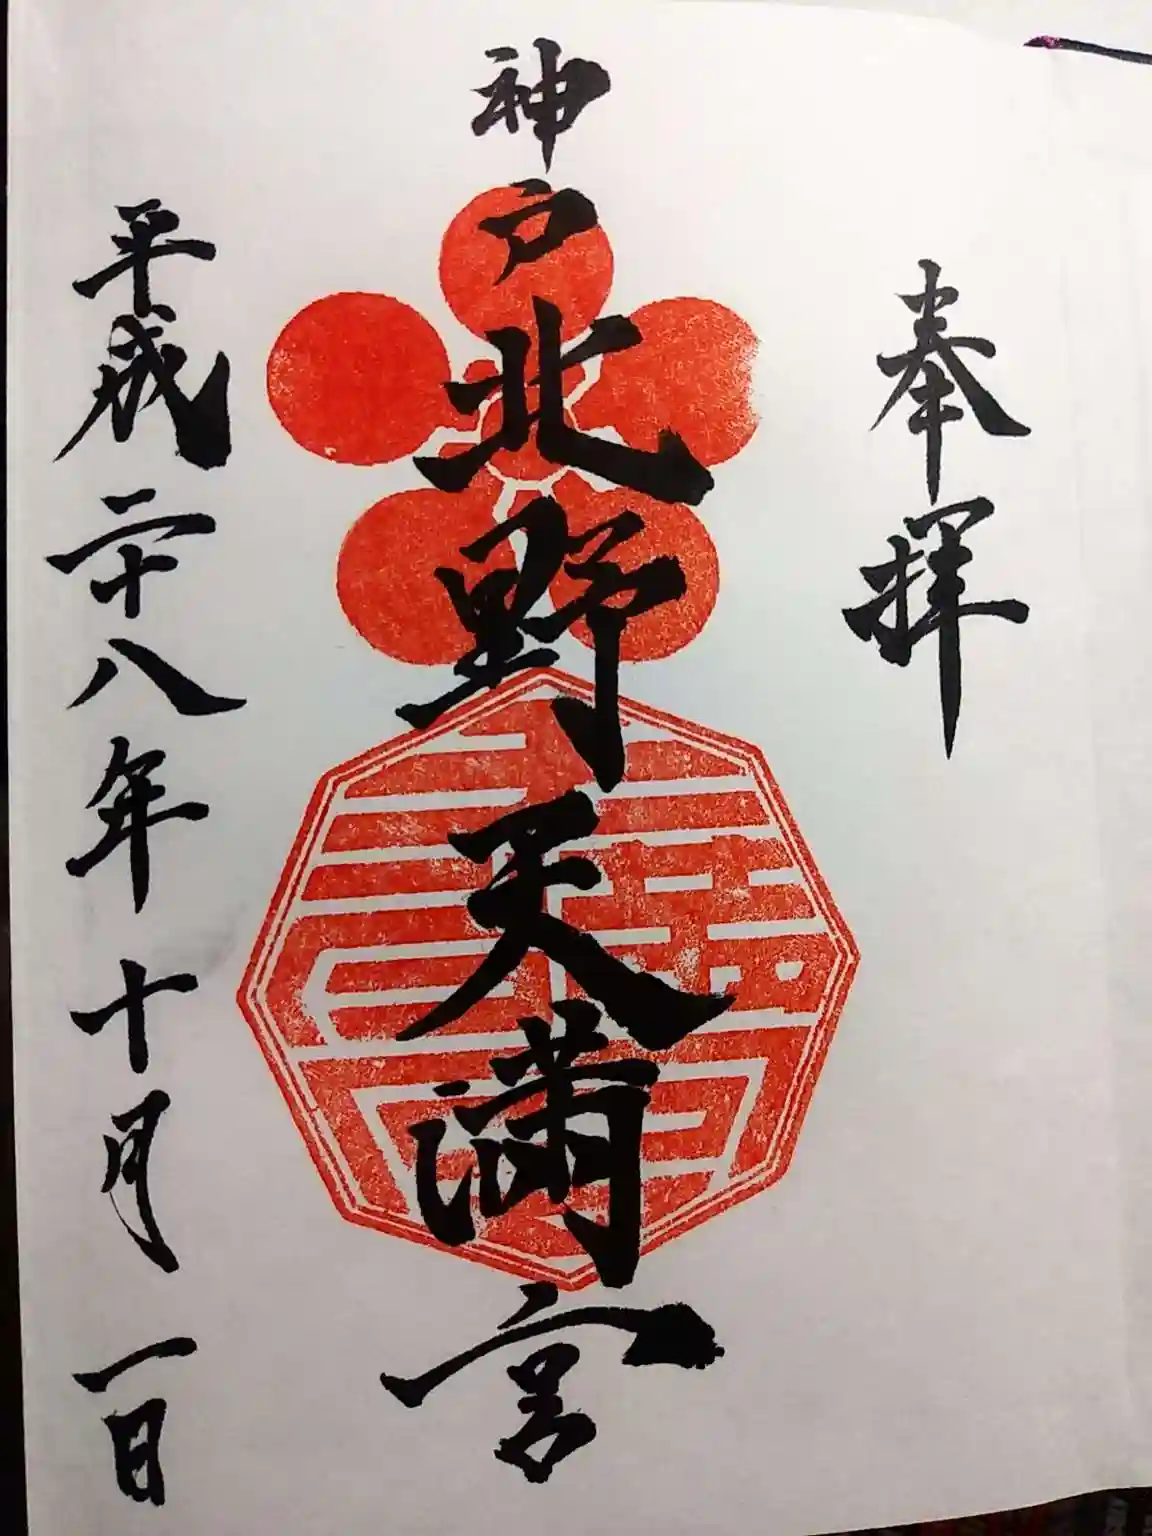 奉拝
神戸北野天満宮
平成二十八年十月一日